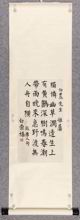 獨憐幽草澗邊生上
有黃鸝深樹鳴春潮
帶雨晚來急野渡無
人舟自橫
白崇禧